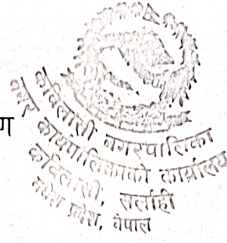 कविलासी नगरपालिका
नगर कार्यपालिकाको कार्यालय
कविलासी, सर्लाही
मधेश प्रदेश, नेपाल
ण